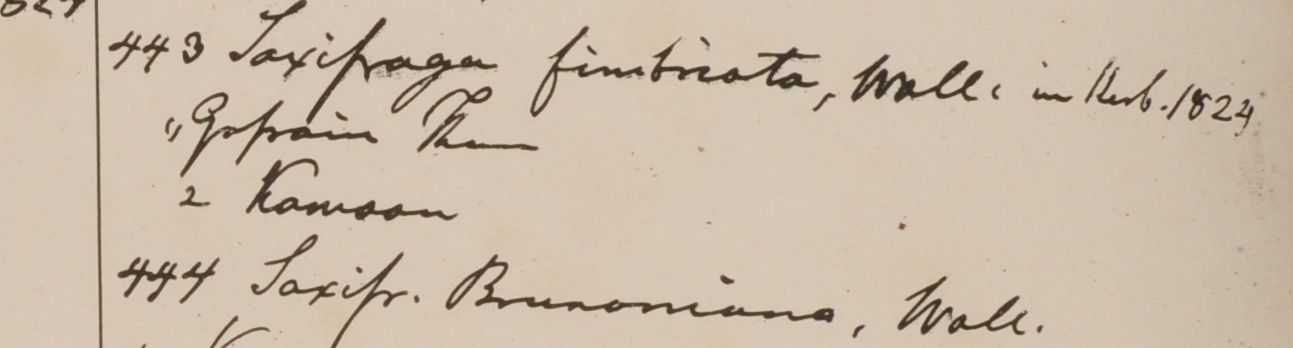 443 Saxifraga fimbriata, Wall. in Herb. 1824
" Gossain Than
2 Kamaon
444 Saxifr. Brunoniana, Wall.